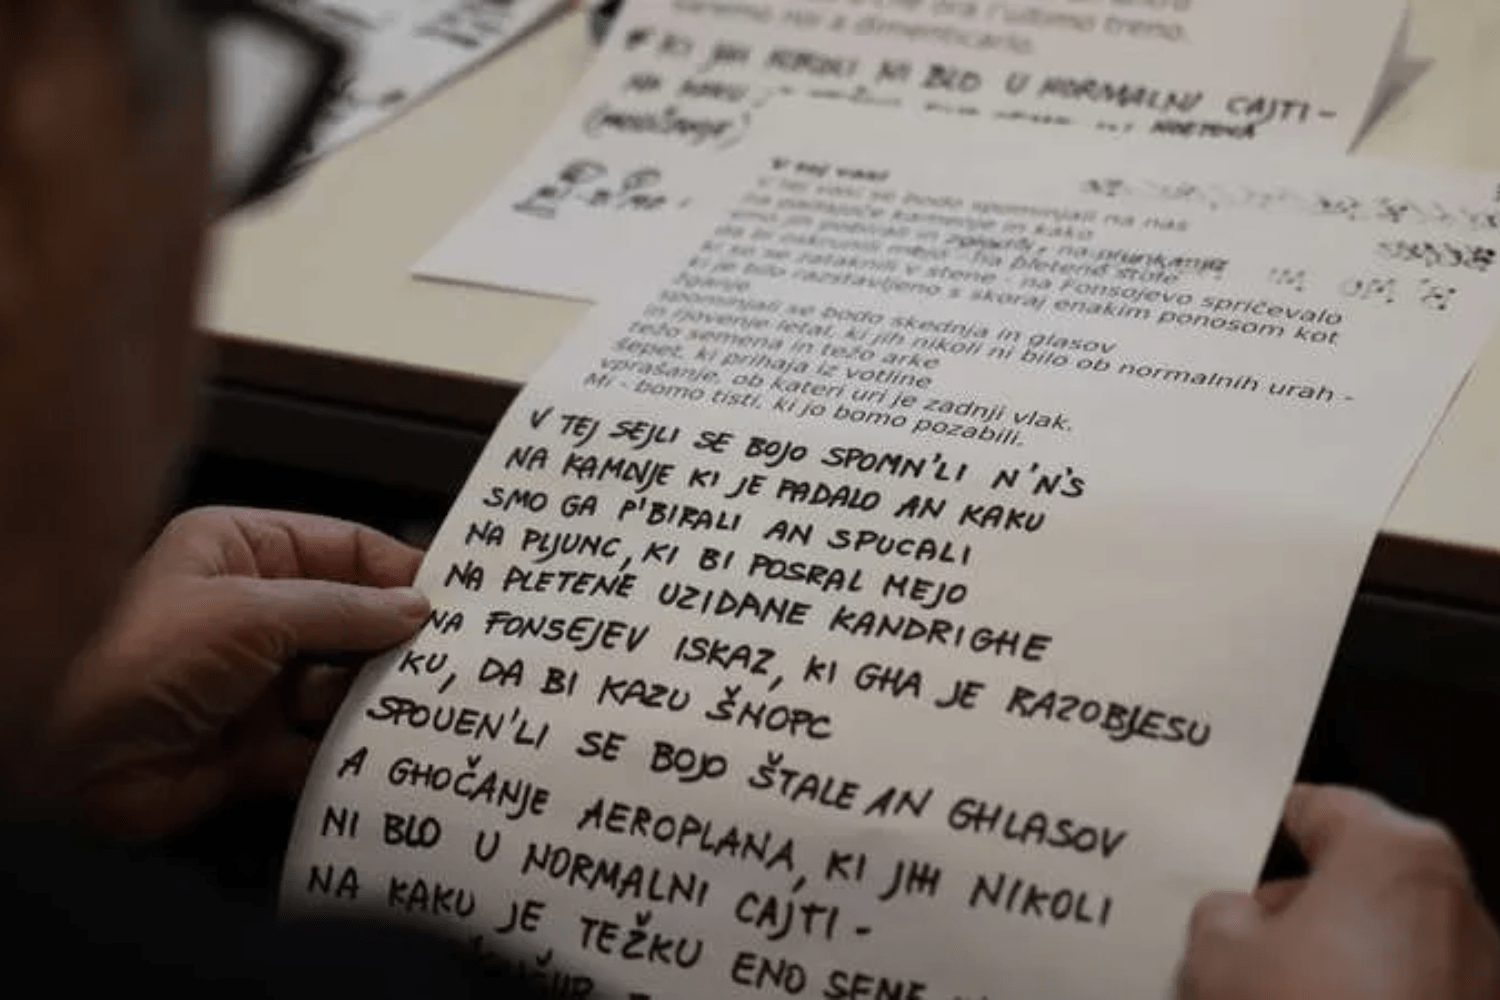 l'ultimo treno.
a dimenticarlo.
KI JIH NIKOLI NI BLO U NORMALNI CAJTI -
NA KAKU
(MOUČANJE)
V tej vasi
V tej vasi se bodo spominjali na nas
na padajoče kamenje in kako
smo jih pobirali in zgladili, na pljunkanje
da bi oskrunili mejo - na pletene stole
ki so se zataknili v stene - na Fonsojevo spričevalo
ki je bilo razstavljeno s skoraj enakim ponosom kot
žganje.
spominjali se bodo skednja in glasov
in rjovenje letal, ki jih nikoli ni bilo ob normalnih urah -
težo semena in težo arke
šepet, ki prihaja iz votline
vprašanje, ob kateri uri je zadnji vlak.
Mi - bomo tisti, ki jo bomo pozabili.
V TEJ SEJLI SE BOJO SPOMN'LI N'N'S
NA KAMNJE KI JE PADALO AN KAKU
SMO GA P'BIRALI AN SPUCALI
NA PLJUNC, KI BI POSRAL MEJO
NA PLETENE UZIDANE KANDRIGHE
NA FONSEJEV ISKAZ, KI GHA JE RAZOBJESU
KU, DA BI KAZU ŠNOPC
SPOUEN'LI SE BOJO ŠTALE AN GHLASOV
A GHOČANJE AEROPLANA, KI JIH NIKOLI
NI BLO U NORMALNI CAJTI -
NA KAKU JE TEŽKU ENO SEME